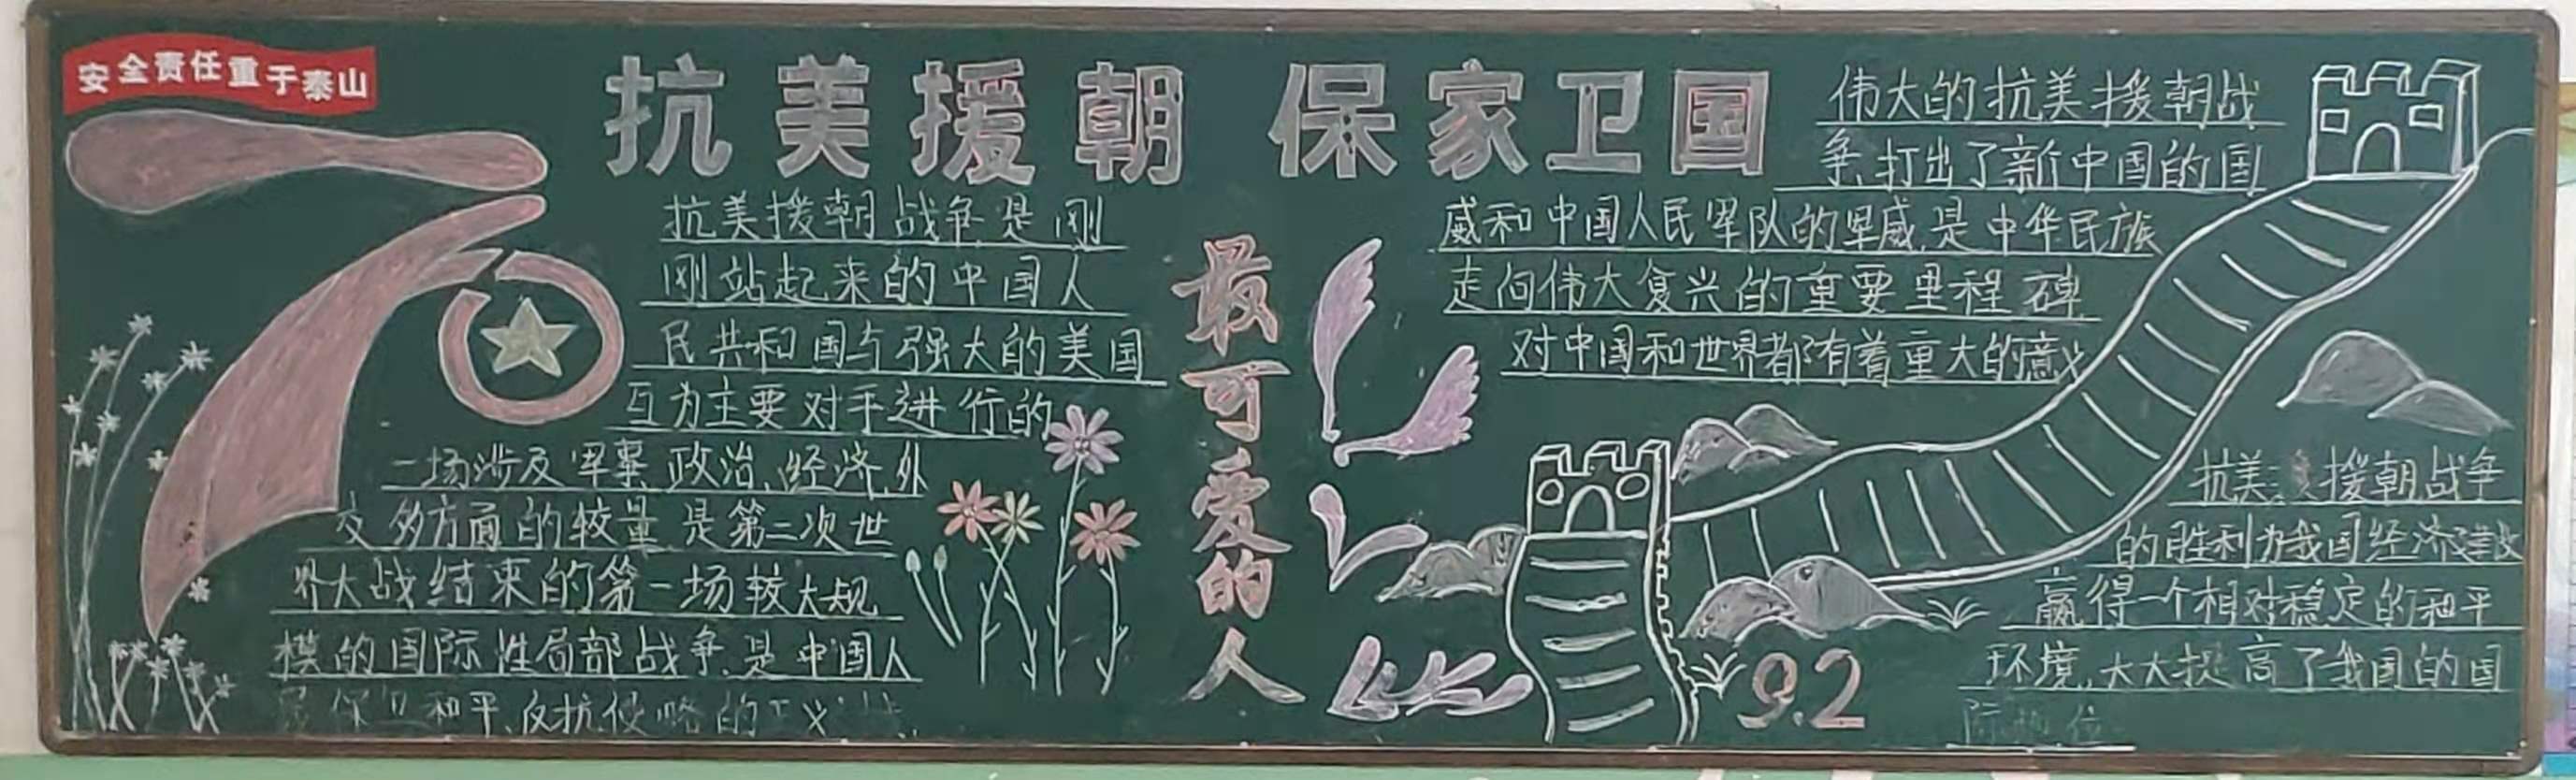 安全责任重于泰山
抗美援朝 保家卫国
抗美援朝战争是刚
刚站起来的中国人
民共和国与强大的美国
互为主要对手进行的
一场涉及军事、政治、经济、外
交多方面的较量是第二次世
界大战结束的第一场较大规
模的国际性局部战争,是中国人
保卫和平、反抗侵略的正义
最可爱的人
伟大的抗美援朝战
争,打出了新中国的国
威和中国人民军队的军威,是中华民族
走向伟大复兴的重要里程碑,
对中国和世界都有着重大的意义
抗美援朝战争
的胜利为我国经济建设
赢得一个相对稳定的和平
环境,大大提高了我国的国
际地位
9.2